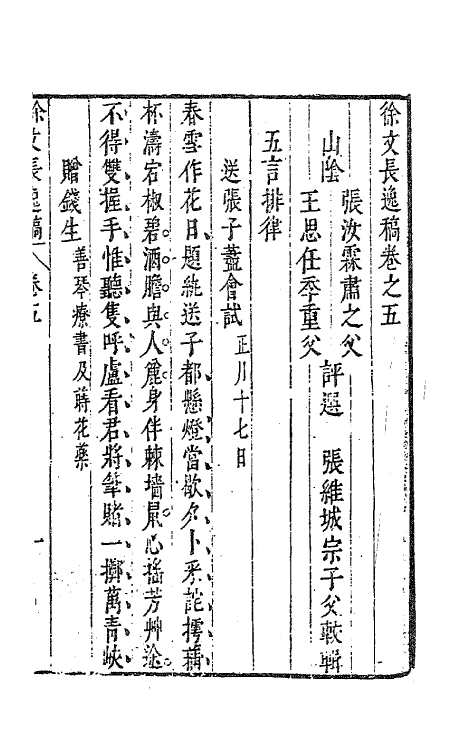 徐文長逸稿卷之五
山陰
張汝霖肅之父
王思任季重父
評選
張維城宗子父較輯
五言排律
送張子藎會試正月十七日
春雪作花日題綂送子都懸燈當歇夕卜采詫摴蒱
杯濤宕椒碧酒膽與人麄身伴棘墻鼠心搖芳艸途
不得雙握手惟聽隻呼盧看君將筆賭一擲萬青蚨
贈錢生善琴療書及蒔花藥
徐文長逸稿
卷五
一